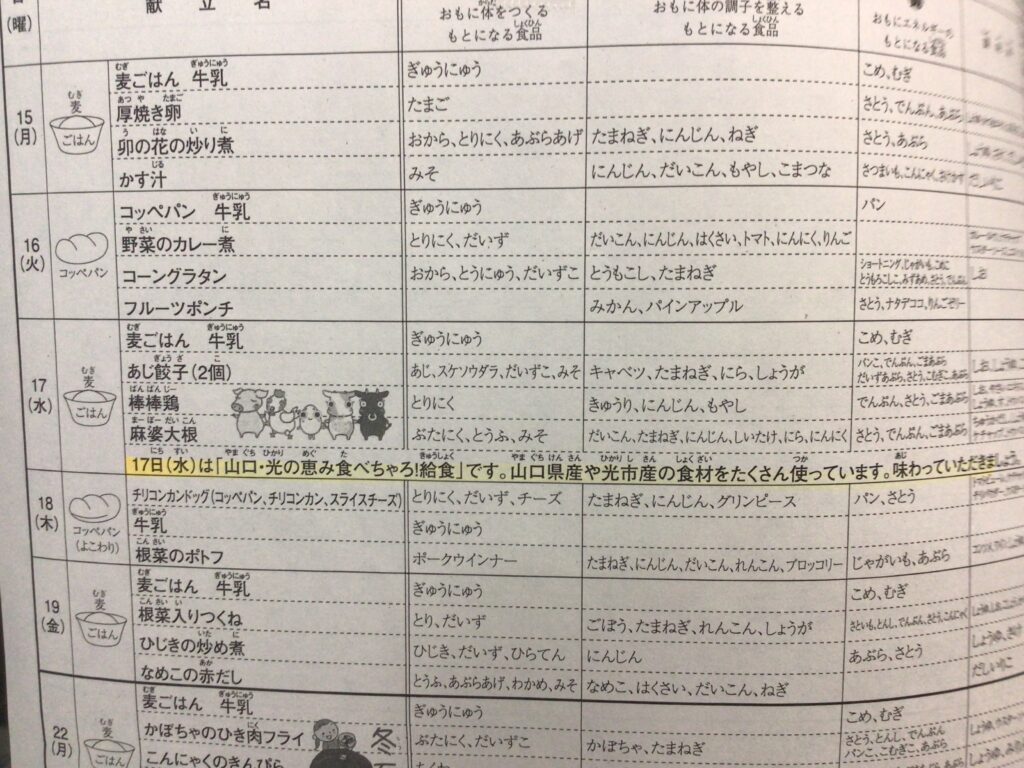 (曜)
献立名
おもに体をつくる
もとになる食品
おもに体の調子を整える
もとになる食品
おもにエネルギーの
もとになる食品
15
(月)
麦
ごはん
麦ごはん 牛乳
ぎゅうにゅう
こめ、むぎ
厚焼き卵
たまご
さとう、でんぷん、あぶら
卯の花の炒り煮
おから、とりにく、あぶらあげ
たまねぎ、にんじん、ねぎ
さとう、あぶら
かす汁
みそ
にんじん、だいこん、もやし、こまつな
さつまいも、こんにゃく、
16
(火)
コッペパン
コッペパン 牛乳
ぎゅうにゅう
パン
野菜のカレー煮
とりにく、だいず
だいこん、にんじん、はくさい、トマト、にんにく、りんご
コーングラタン
おから、とうにゅう、だいずこ
とうもこし、たまねぎ
ショートニング、じゃがいも、こめこ
とうもろこしこ、みずあめ、さとう、でんぷん
しお
フルーツポンチ
みかん、パインアップル
さとう、ナタデココ、りんごゼリー
17
(水)
麦
ごはん
麦ごはん 牛乳
ぎゅうにゅう
こめ、むぎ
あじ餃子(2個)
あじ、スケソウダラ、だいずこ、みそ
キャベツ、たまねぎ、にら、しょうが
パンこ、でんぷん、ごまあぶら
だいずあぶら、さとう、こむぎこ、あぶら
棒棒鶏
とりにく
きゅうり、にんじん、もやし
でんぷん、さとう、ごまあぶら
麻婆大根
ぶたにく、とうふ、みそ
だいこん、たまねぎ、にんじん、しいたけ、にら、にんにく
さとう、でんぷん、あぶら
17日(水)は「山口・光の恵み食べちゃろ!給食」です。山口県産や光市産の食材をたくさん使っています。味わっていただきましょう。
18
(木)
コッペパン
(よこわり)
チリコンカンドッグ(コッペパン、チリコンカン、スライスチーズ)
とりにく、だいず、チーズ
たまねぎ、にんじん、グリンピース
パン、さとう
牛乳
ぎゅうにゅう
根菜のポトフ
ポークウインナー
たまねぎ、にんじん、だいこん、れんこん、ブロッコリー
じゃがいも、あぶら
19
(金)
麦
ごはん
麦ごはん 牛乳
ぎゅうにゅう
こめ、むぎ
根菜入りつくね
とり、だいず
ごぼう、たまねぎ、れんこん、しょうが
さといも、とんし、でんぷん、さとう、こんにゃく
ひじきの炒め煮
ひじき、だいず、ひらてん
にんじん
あぶら、さとう
なめこの赤だし
とうふ、あぶらあげ、わかめ、みそ
なめこ、はくさい、だいこん、ねぎ
だしいりこ
22
(月)
麦
ごはん
麦ごはん 牛乳
ぎゅうにゅう
こめ、むぎ
かぼちゃのひき肉フライ
ぶたにく、だいずこ
かぼちゃ、たまねぎ
さとう、とんし、でんぷん
パンこ、こむぎこ、あぶら
こんにゃくのきんぴら
冬